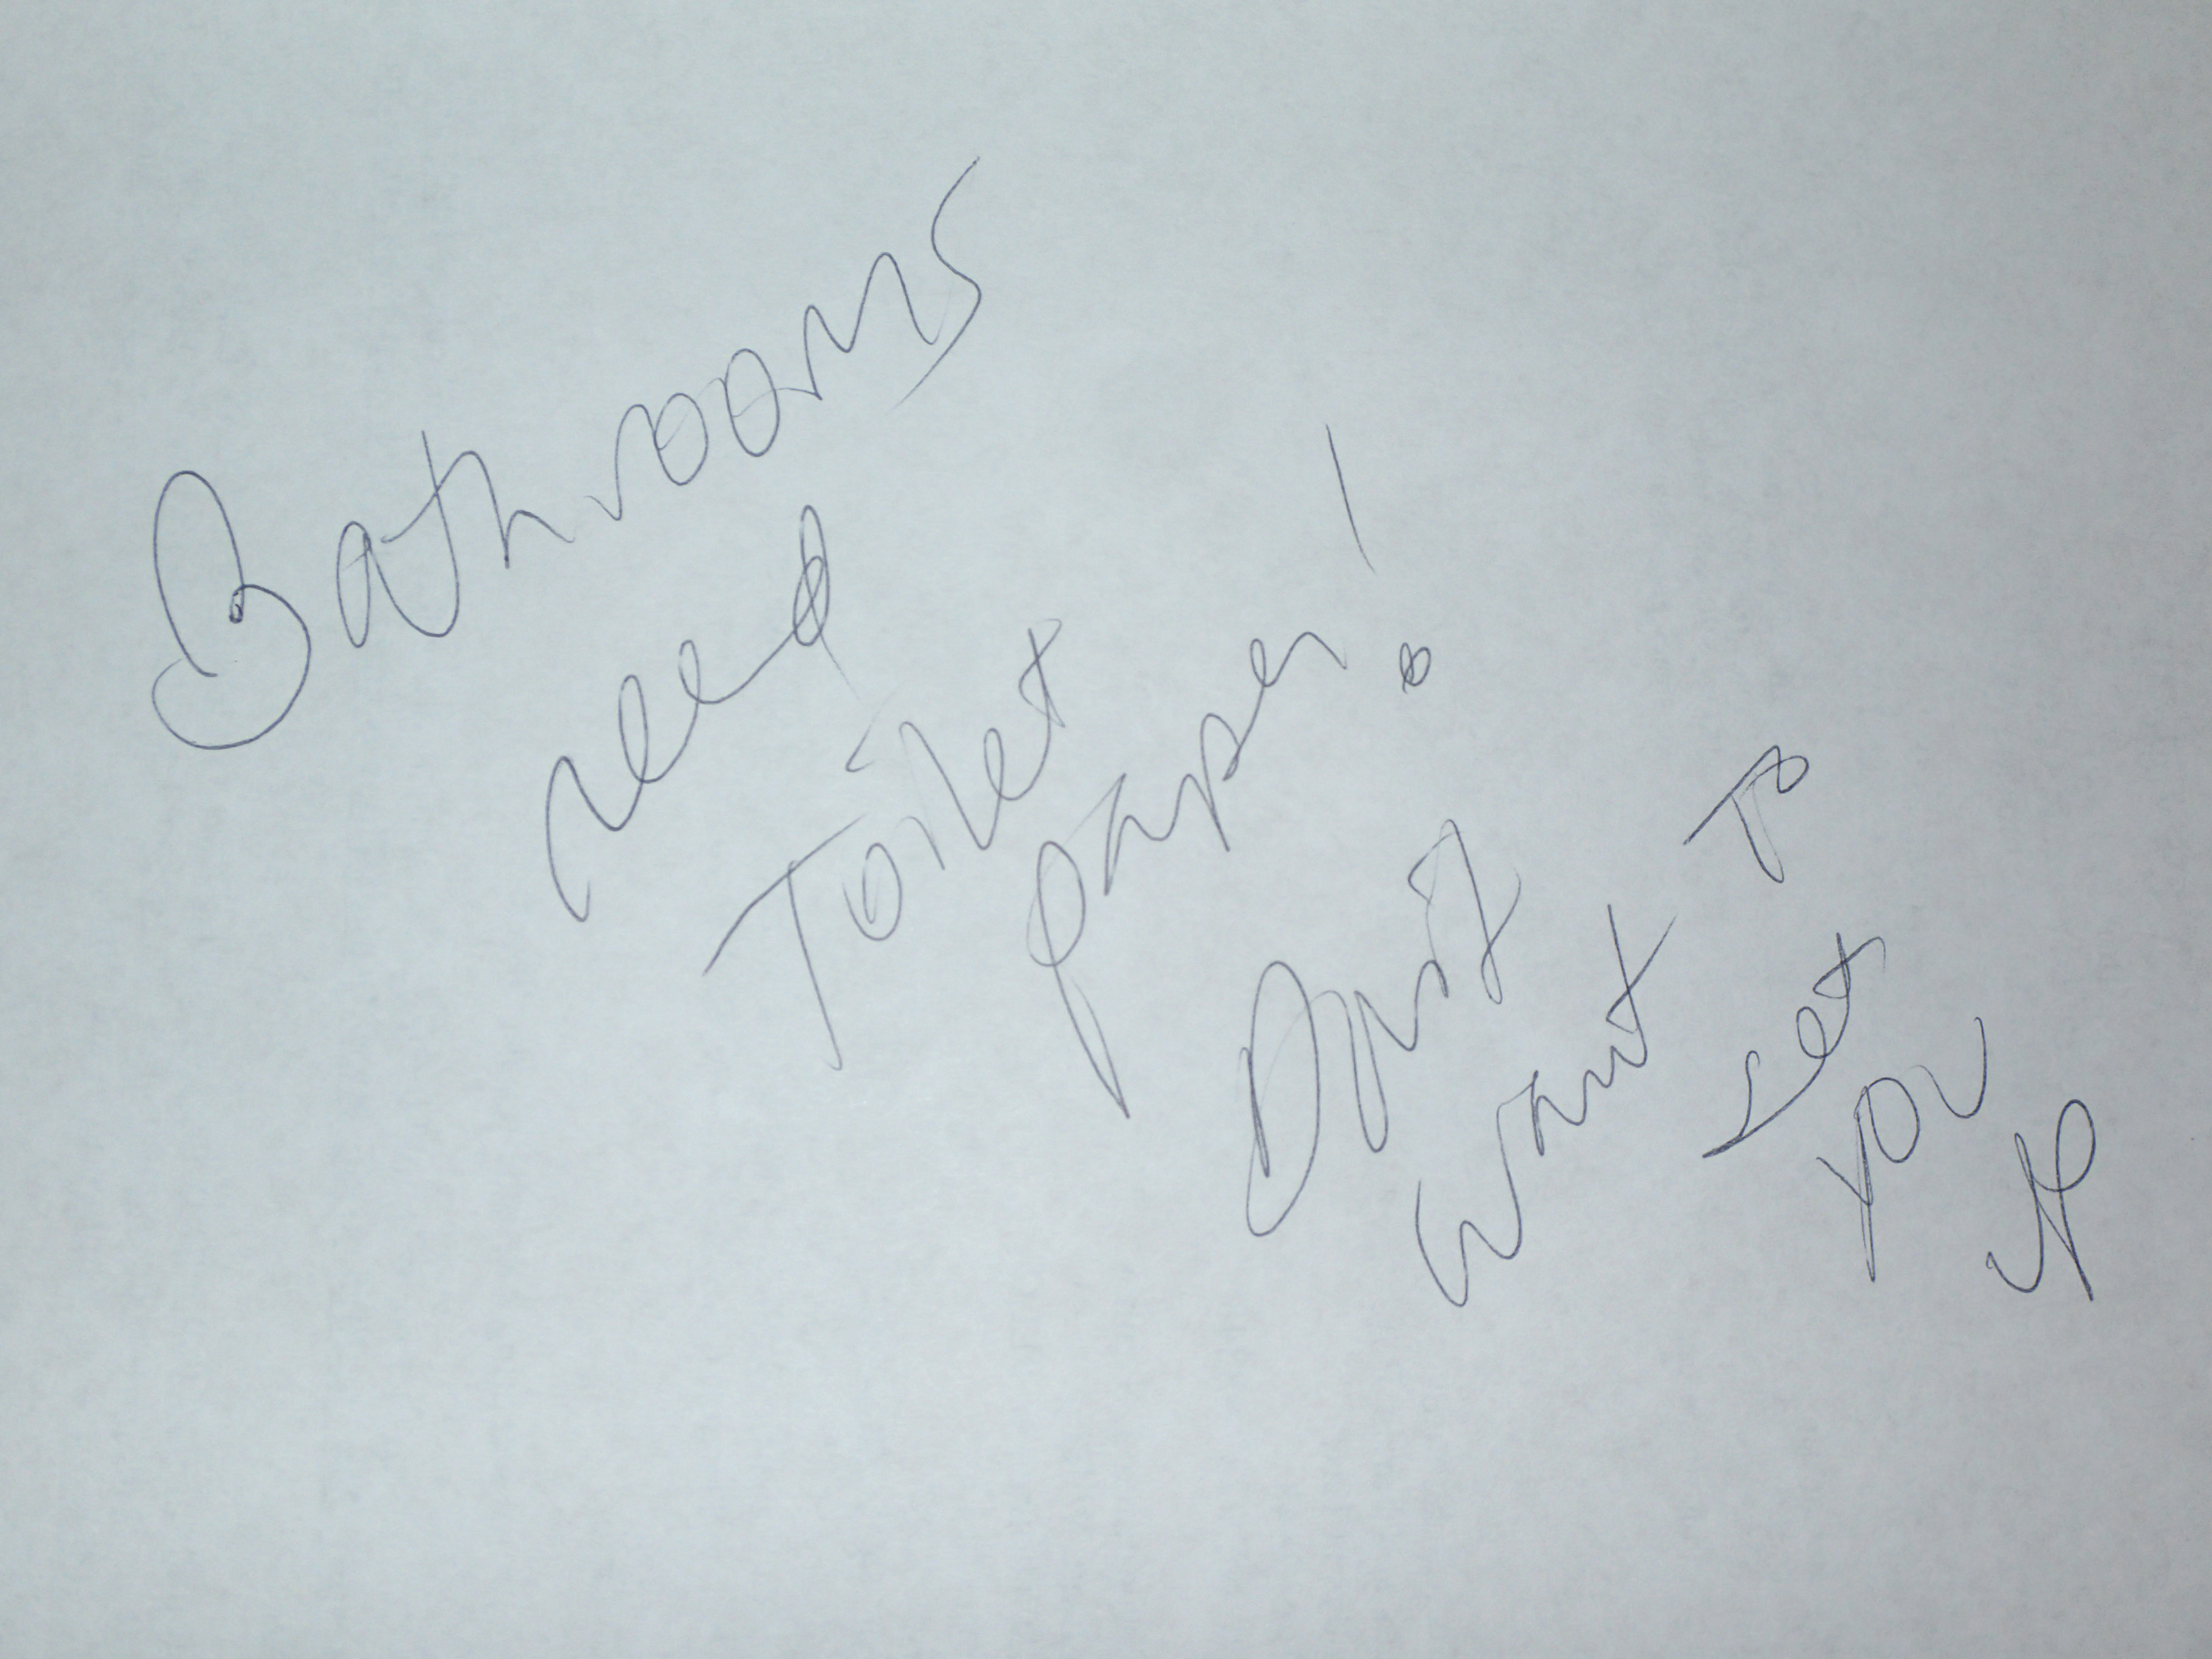 Bathrooms
need
Toilet
paper!
Don't
want to
let
you
up